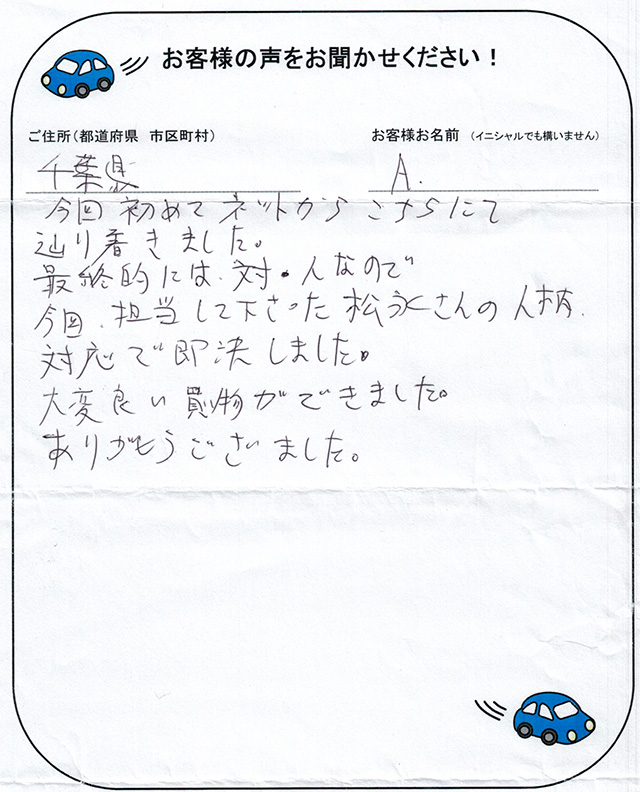 お客様の声をお聞かせください！
ご住所（都道府県　市区町村） お客様お名前 （イニシャルでも構いません）
千葉県 A.
今回 初めて ネットから こちらにて
辿り着きました。
最終的には、対・人なので
今回、担当して下さった 松永さんの 人柄、
対応で 即決しました。
大変良い 買物ができました。
ありがとうございました。